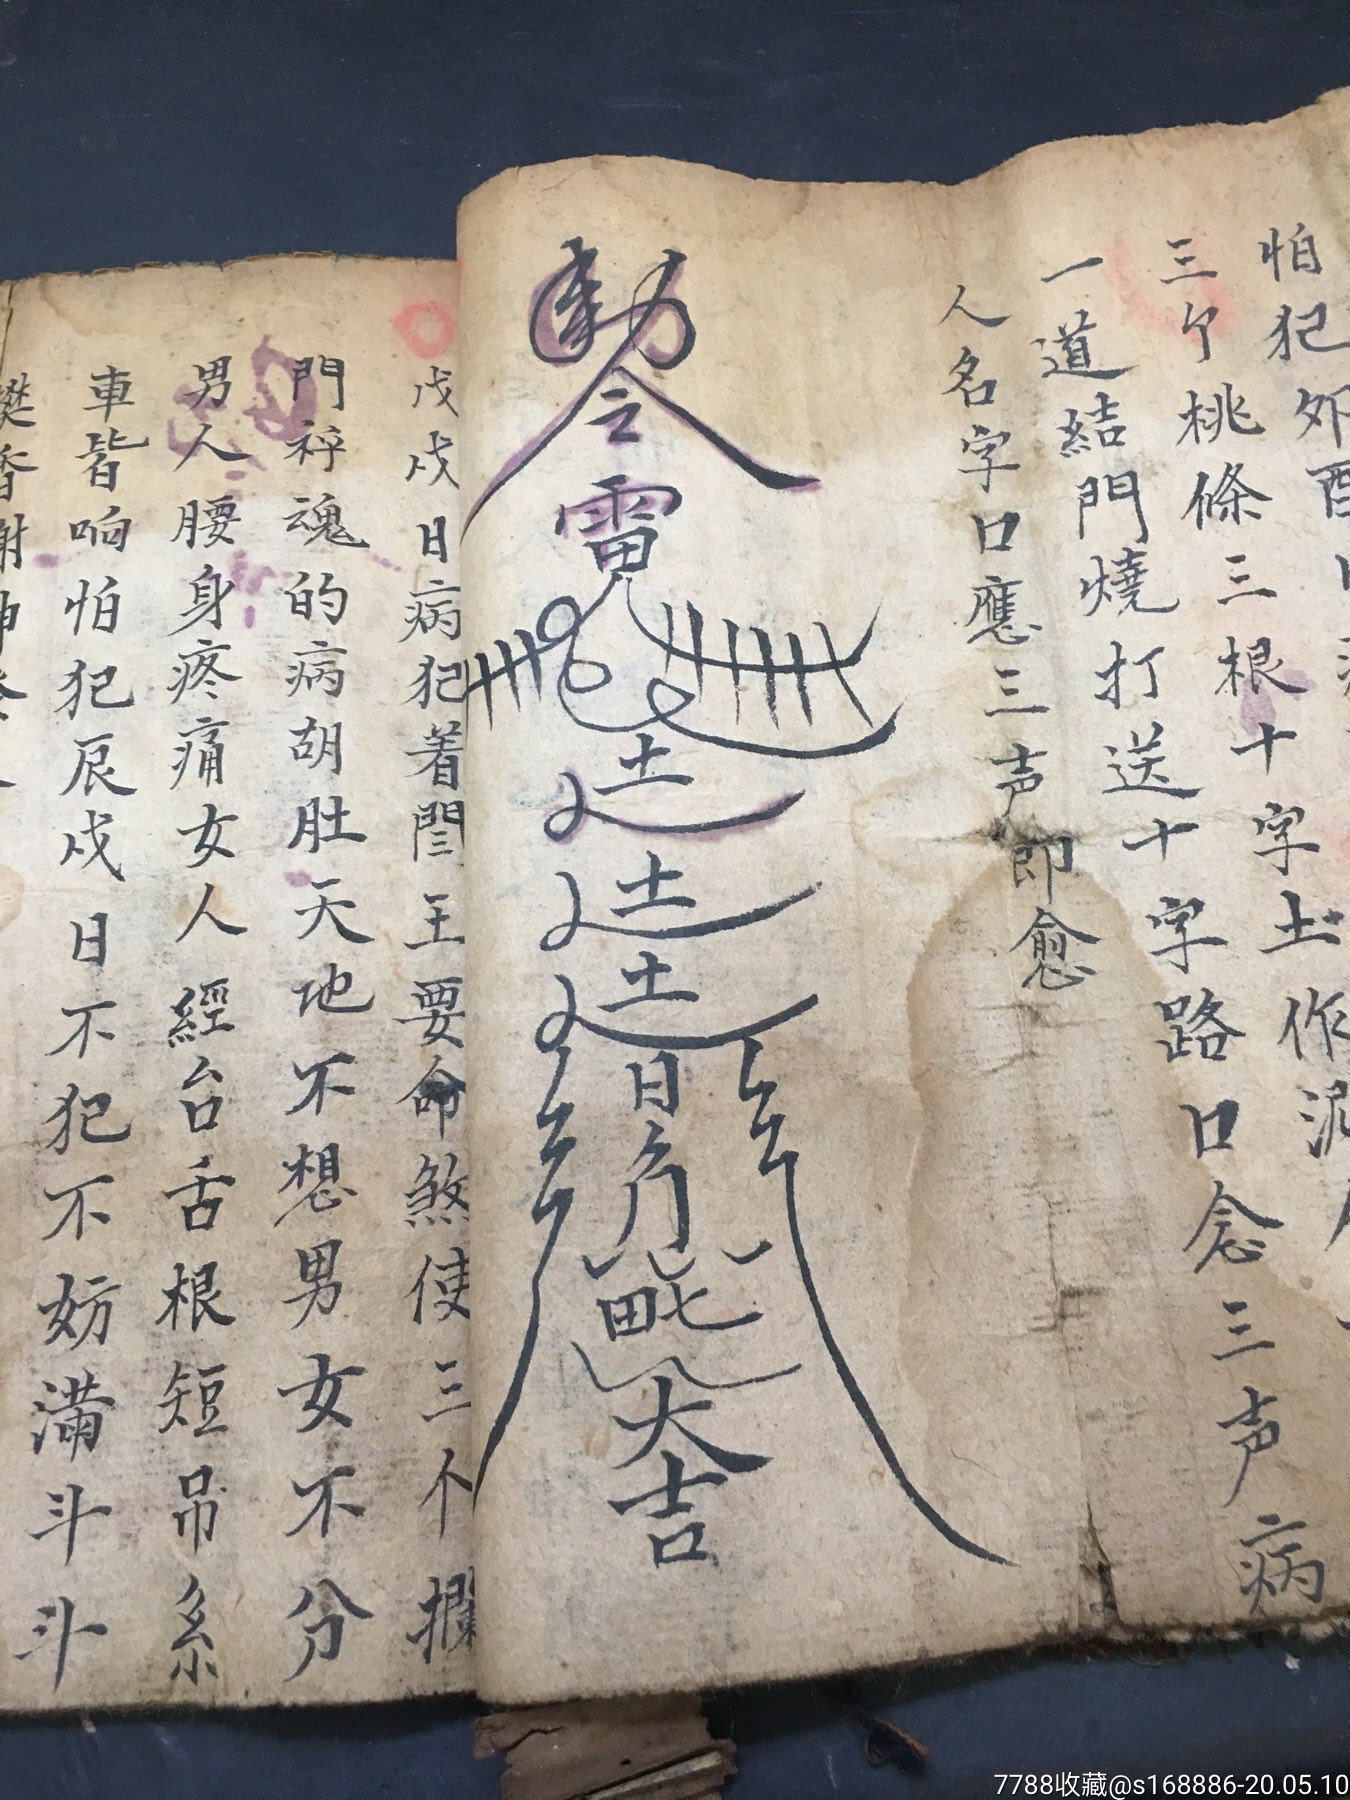 怕犯外
三个桃條三根十字土作泥
一道結門燒打送十字路口念三声病
人名字口應三声即愈
勅令
雷
土
土
土
日月
大吉
戊戌日病犯着閆王要命煞使三个攔
門神魂的病胡肚天地不想男女不分
男人腰身疼痛女人經台舌根短吊系
車皆响怕犯辰戌日不犯不妨滿斗斗
樊香谢神
7788收藏@s168886-20.05.10